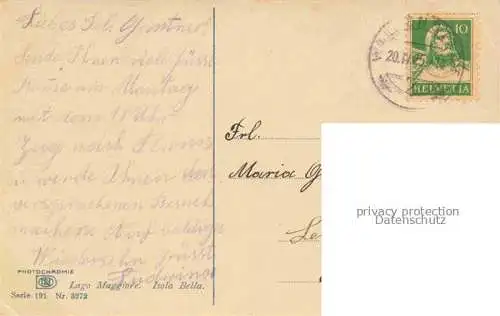 Liebes Frl. Günthner!
Sende Ihnen viele Grüsse
komme am Montag
mit dem 11 Uhr
Zug nach
u werde Ihnen den
versprochenen Besuch
machen. Auf baldiges
Wiedersehn grüsst
Ludwina
PHOTOCHROMIE
Lago Maggiore. Isola Bella.
Serie 191 Nr. 3272
20.IV.25
10
HELVETIA
Frl.
Maria G
privacy protection
Datenschutz